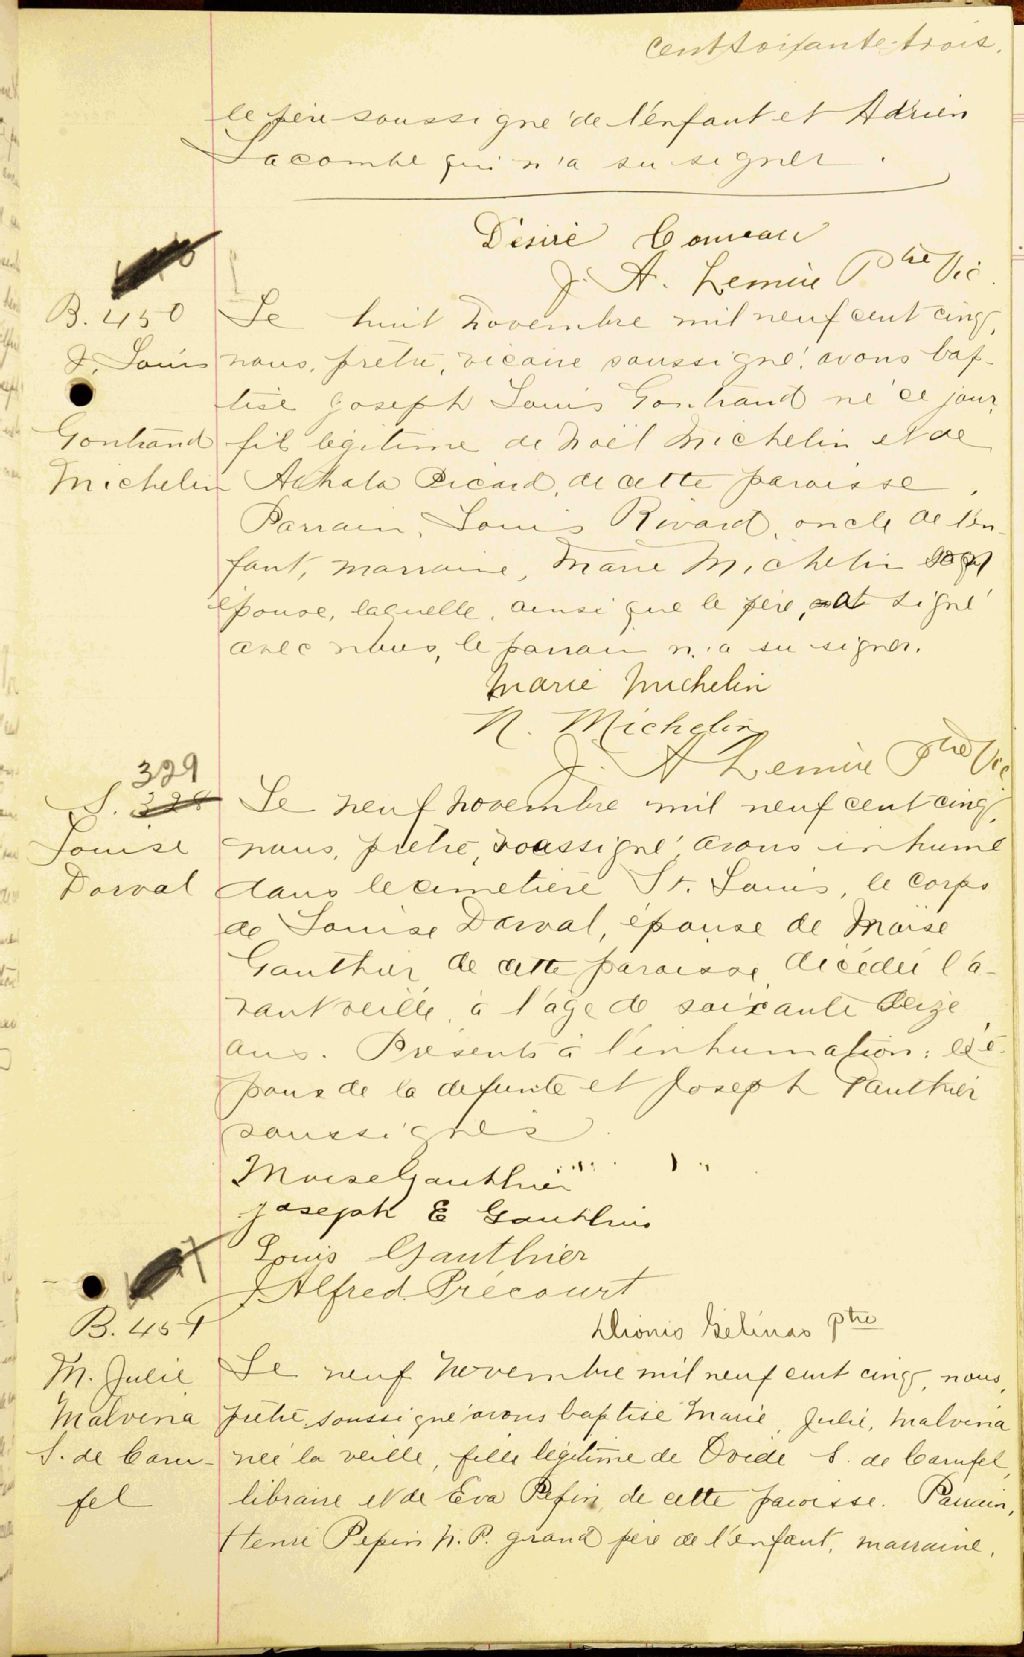 cent soixante-trois.
le père soussigné de l'enfant et Adrien
Lacombe qui n'a su signer.
Désiré Comeau
J. A. Lemire Ptre Vic.
B. 450
J. Louis
Gontrand
Michelin
Le huit novembre mil neuf cent cinq,
nous, prêtre, vicaire soussigné, avons bap-
tisé Joseph Louis Gontrand né ce jour,
fils légitime de Noël Michelin et de
Achala Picard, de cette paroisse.
Parrain, Louis Rivard, oncle de l'en-
fant, marraine, Marie Michelin son
épouse, laquelle, ainsi que le père, ont signé
avec nous, le parrain n'a su signer.
Marie Michelin
N. Michelin
J. A Lemire Ptre Vic
329
S. 328
Louise
Dorval
Le neuf novembre mil neuf cent cinq,
nous, prêtre, soussigné, avons inhumé
dans le cimetière St. Louis, le corps
de Louise Dorval, épouse de Moïse
Gauthier de cette paroisse, décédée l'a-
vant veille, à l'âge de soixante seize
ans. Présents à l'inhumation: l'é-
poux de la defunte et Joseph Gauthier
soussignés.
Moise Gauthier
joseph E Gauthier
Louis Gauthier
J Alfred Précourt
Dionis Gélinas ptre
B. 451
M. Julie
Malvina
S. de Caru-
fel
Le neuf novembre mil neuf cent cinq, nous,
prêtre soussigné avons baptisé Marie, Julie, Malvina
née la veille, fille légitime de Ovide S. de Carufel,
libraire et de Eva Pepin, de cette paroisse. Parrain,
Henri Pepin N.P. grand père de l'enfant, marraine,